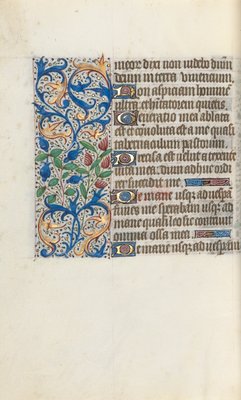 meor dixi non videbo dnm
deum in terra viventium
Non aspiciam homine
ultra et habitatorem quietis
Generatio mea ablata
est et convoluta est a me quasi
tabernaculum pastorum
Precisa est velut a texente
vita mea dum adhuc ordi
rer succidit me
De mane usq ad vespa
finies me sperabam usq ad
mane quasi leo sic contrivit
omnia ossa mea
De mane usq ad vespam